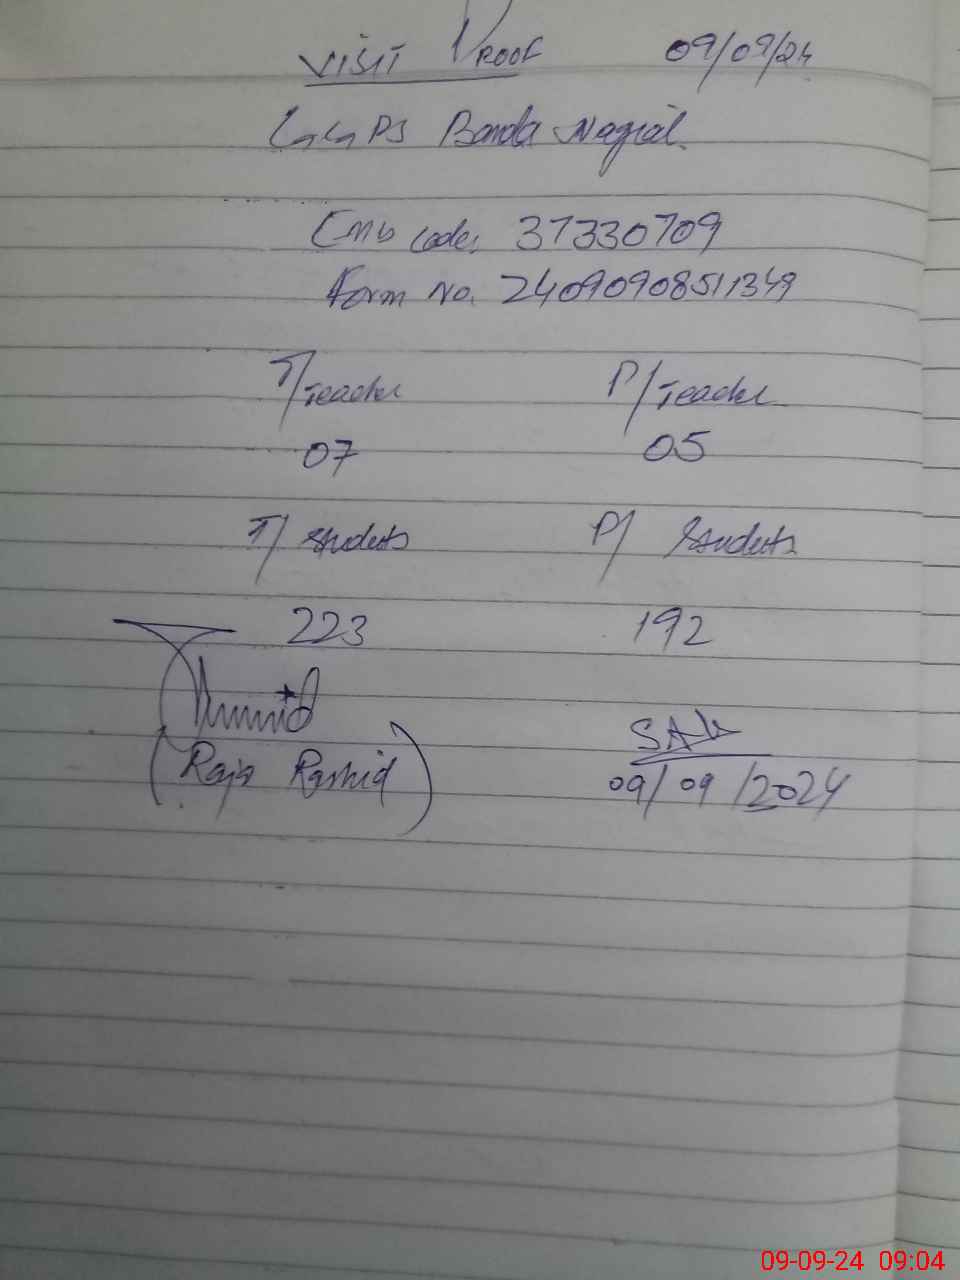 VISIT PROOF 09/09/24
GGPS Banda Nagial.
Emis code. 37330709
Form No. 24090908511349
T/Teacher P/Teacher
07 05
T/ Students P/ Students
223 192
(Raja Rashid)
09/09/2024
09-09-24 09:04